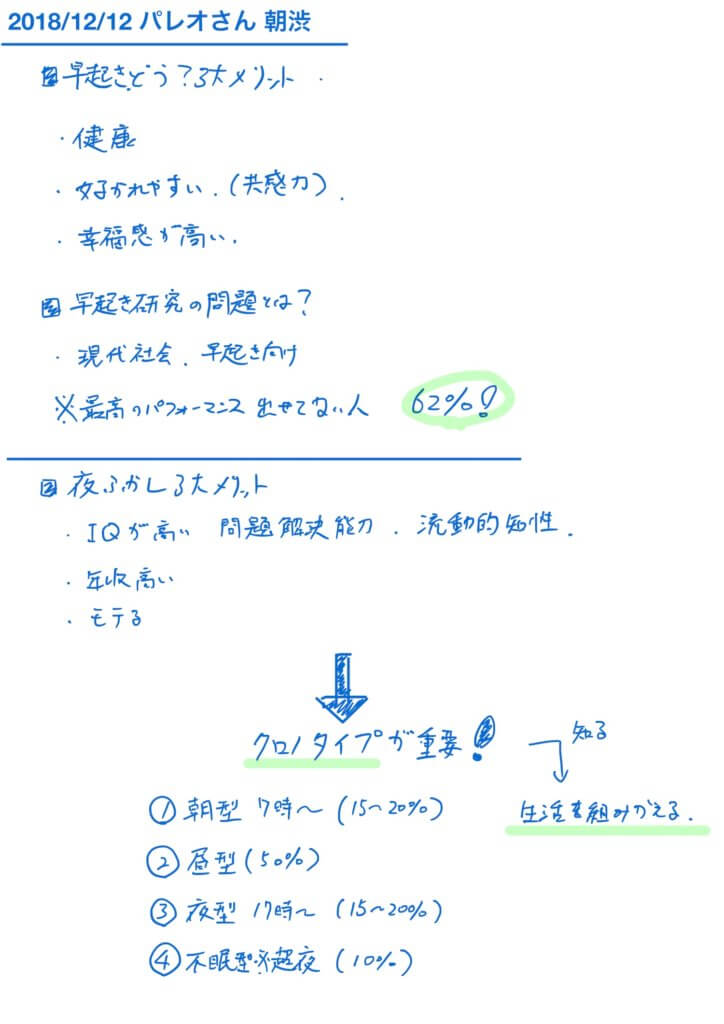 2018/12/12 パレオさん 朝渋
早起きどう?3大メリット
・健康
・好かれやすい.(共感力).
・幸福感が高い.
早起き研究の問題とは?
・現代社会.早起き向け
※最高のパフォーマンス出せてない人 62%!
夜ふかし3大メリット
・IQが高い 問題解決能力.流動的知性.
・年収高い
・モテる
クロノタイプが重要!
知る
生活を組みかえる.
① 朝型 7時〜(15〜20%)
② 昼型(50%)
③ 夜型 17時〜(15〜20%)
④ 不眠型※超夜(10%)